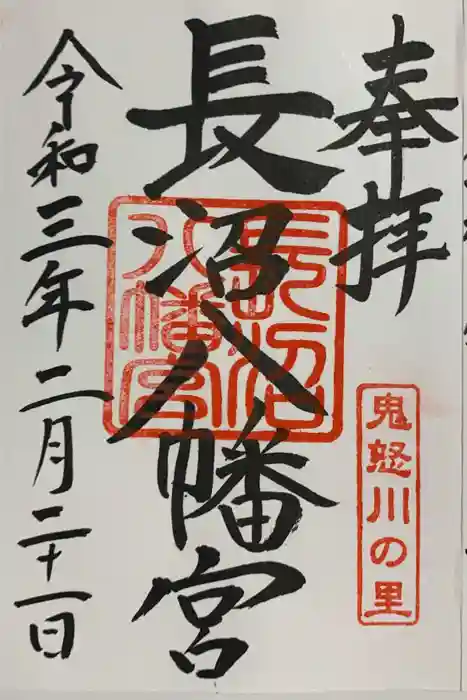 奉拝
鬼怒川の里
長沼八幡宮
長沼
八幡宮
令和三年二月二十一日